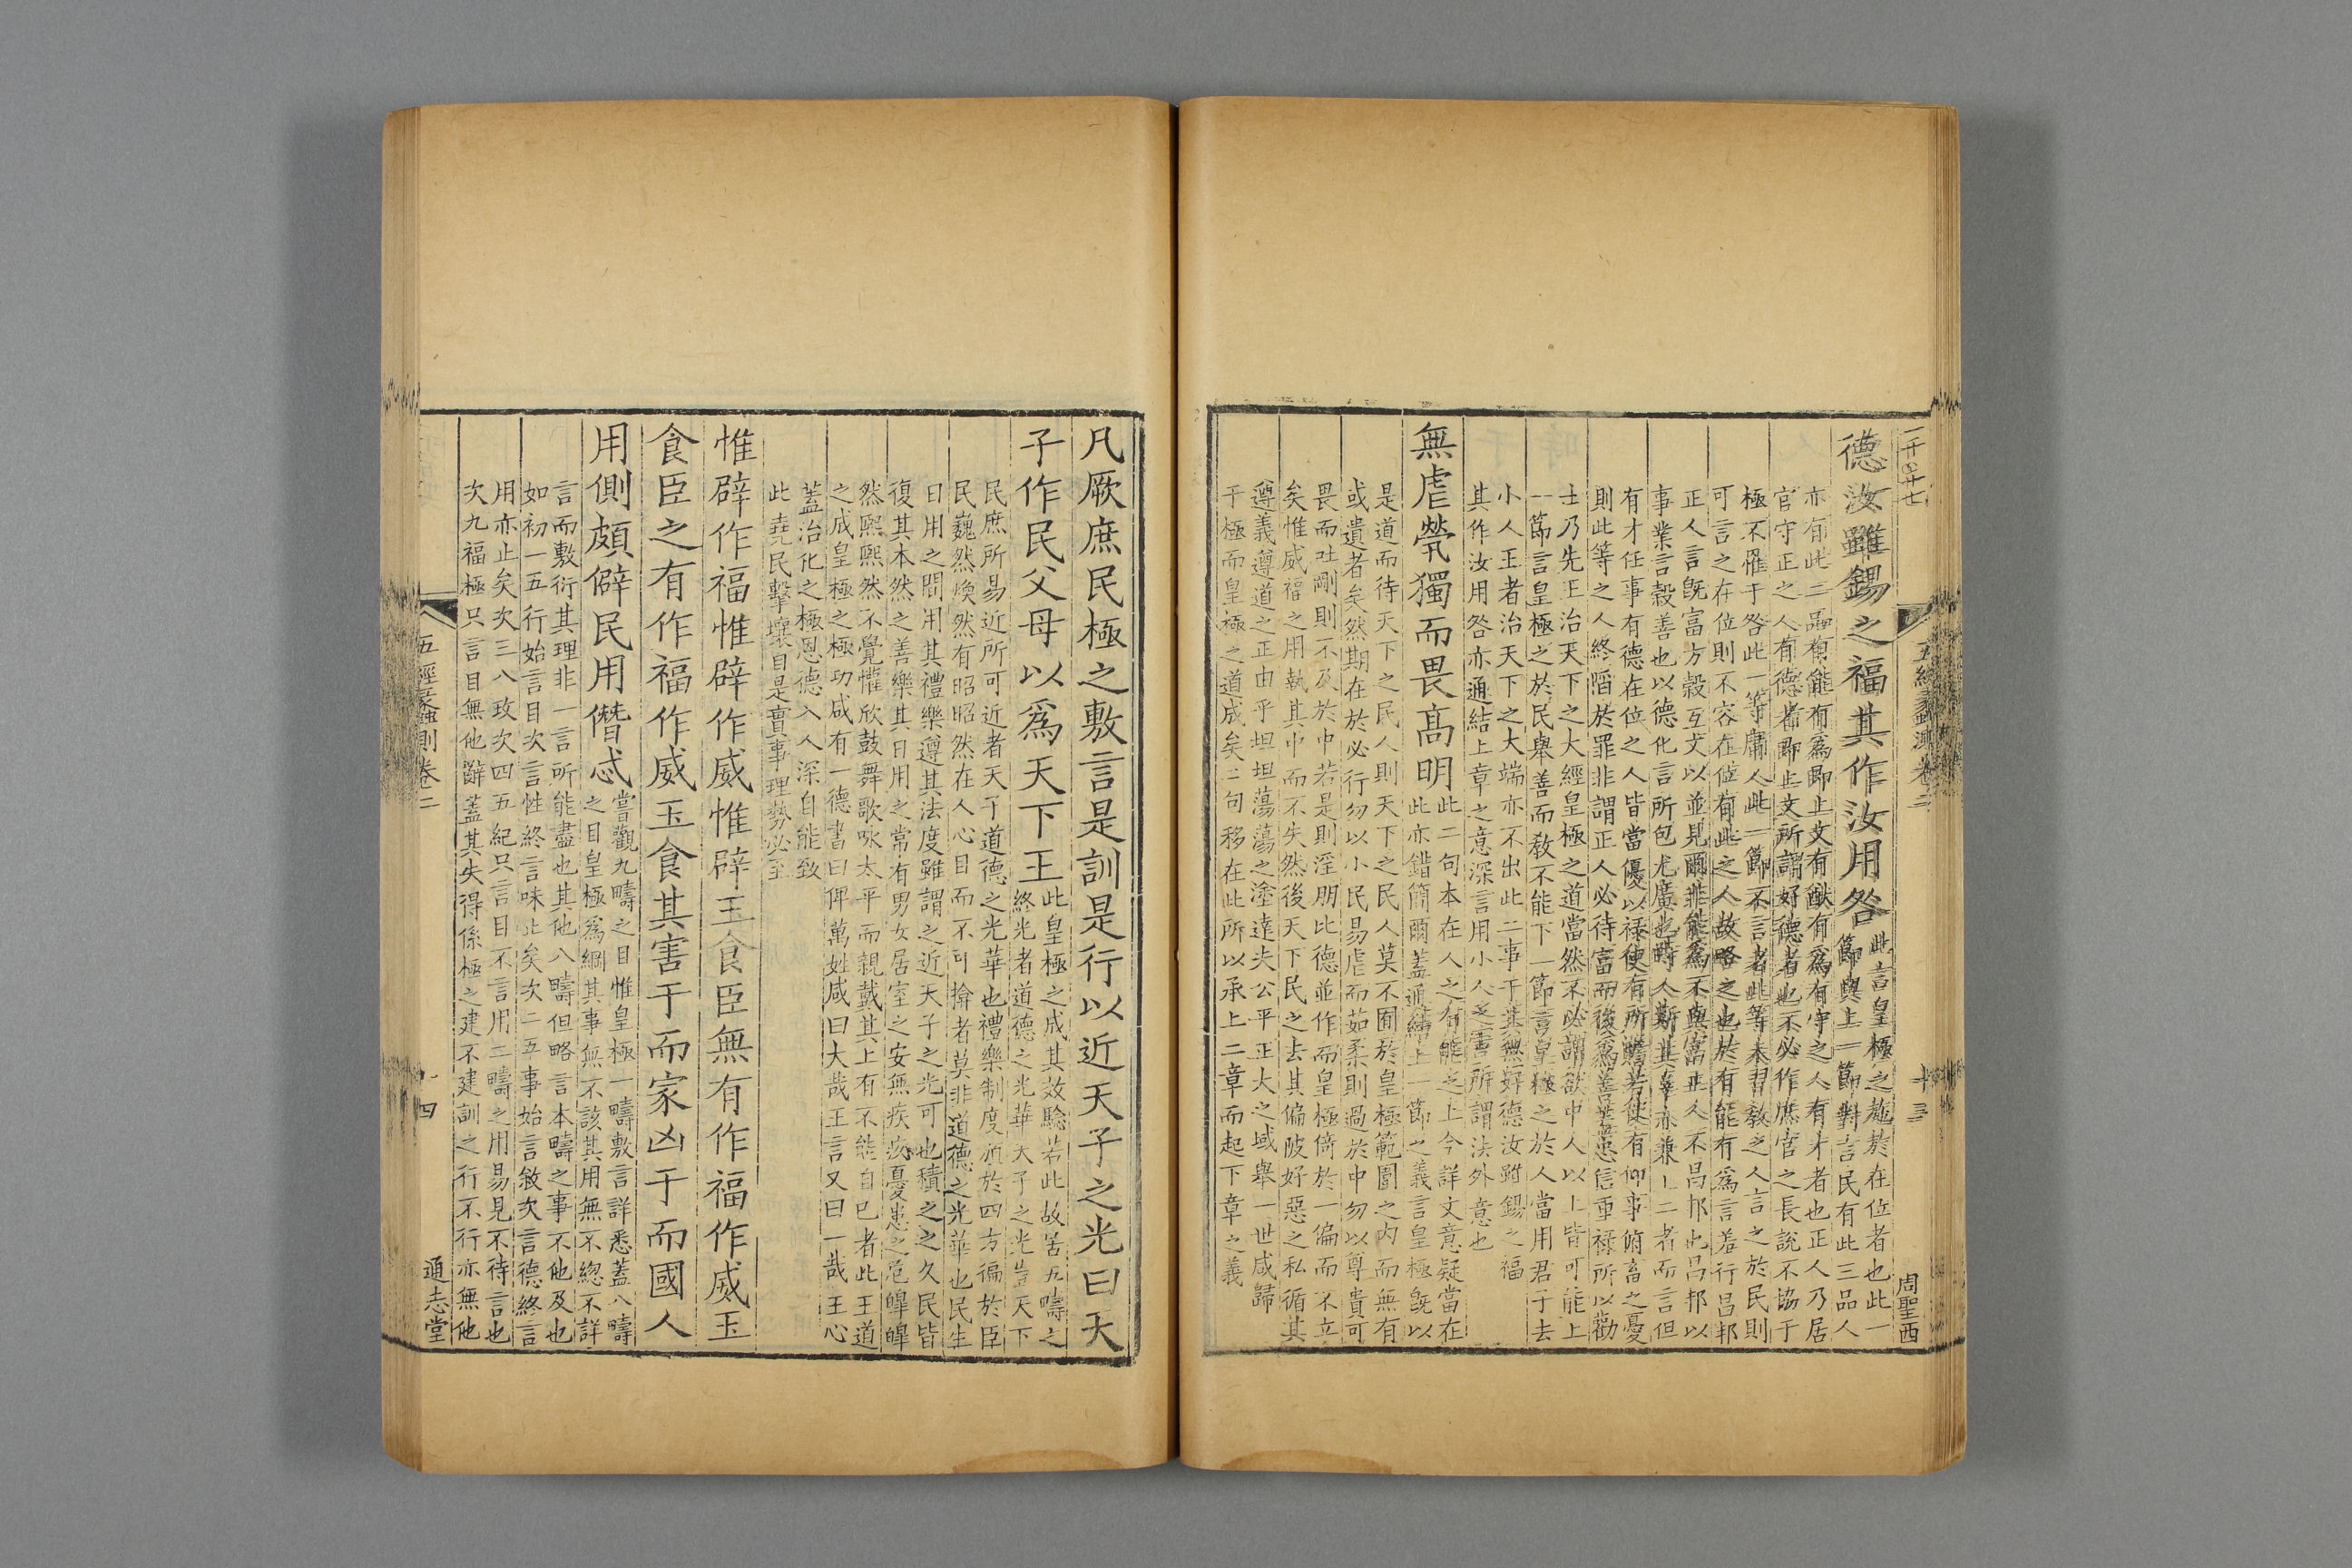 德汝雖錫之福其作汝用咎
此言皇極之施於在位者也此一
節與上一節對言民有此三品人
亦有此三品有能有爲即上文有猷有爲有守之人有才者也正人乃居
官守正之人有德者即上文所謂好德者也不必作庶官之長說不協于
極不罹于咎此一等庸人此一節不言者此等未習教之人言之於民則
可言之在位則不容在位有此之人故略之也於有能有爲言羞行昌邦
正人言旣富方穀互文以並見爾非能爲不與富正人不昌邦也昌邦以
事業言穀善也以德化言所包尤廣也時人斯其辜亦兼上二者而言但
有才任事有德在位之人皆當優以祿使有所贍若使有仰事俯畜之憂
則此等之人終陷於罪非謂正人必待富而後爲善盖忠信重祿所以勸
士乃先王治天下之大經皇極之道當然不必謂欲中人以上皆可能上
一節言皇極之於民舉善而教不能下一節言皇極之於人當用君子去
小人王者治天下之大端亦不出此二事于其無好德汝雖錫之福
其作汝用咎亦通結上章之意深言用小人之害所謂法外意也
無虐煢獨而畏高明
此二句本在人之有能之上今詳文意疑當在
此亦錯簡爾蓋通結上一節之義言皇極旣以
是道而待天下之民人則天下之民人莫不囿於皇極範圍之內而無有
或遺者矣然期在於必行勿以小民易虐而茹柔則過於中勿以尊貴可
畏而吐剛則不及於中若是則淫朋比德並作而皇極倚於一偏而不立
矣惟威福之用執其中而不失然後天下民之去其偏陂好惡之私循其
遵義遵道之正由乎坦坦蕩蕩之塗達夫公平正大之域舉一世咸歸
于極而皇極之道成矣二句移在此所以承上二章而起下章之義
五經蠡測卷二
十三
周聖西
凡厥庶民極之敷言是訓是行以近天子之光曰天
子作民父母以爲天下王
此皇極之成其效驗若此故居九疇之
終光者道德之光華天子之光豈天下
民庶所易近所可近者天子道德之光華也禮樂制度頒於四方徧於臣
民巍然煥然有昭昭然在人心目而不可揜者莫非道德之光華也民生
日用之間用其禮樂遵其法度雖謂之近天子之光可也積之之久民皆
復其本然之善樂其日用之常有男女居室之安無疾疢憂患之危皥皥
然熙熙然不覺懽欣鼓舞歌咏太平而親戴其上有不能自已者此王道
之成皇極之極功咸有一德書曰俾萬姓咸曰大哉王言又曰一哉王心
蓋治化之極恩德入人深自能致
此堯民擊壤自是實事理勢必至
惟辟作福惟辟作威惟辟玉食臣無有作福作威玉
食臣之有作福作威玉食其害于而家凶于而國人
用側頗僻民用僭忒
嘗觀九疇之目惟皇極一疇敷言詳悉蓋八疇
之目皇極爲綱其事無不該其用無不總不詳
言而敷衍其理非一言所能盡也其他八疇但略言本疇之事不他及也
如初一五行始言目次言性終言味止矣次二五事始言敘次言德終言
用亦止矣次三八政次四五紀只言目不言用二疇之用易見不待言也
次九福極只言目無他辭蓋其失得係極之建不建訓之行不行亦無他
五經蠡測卷二
十四
通志堂